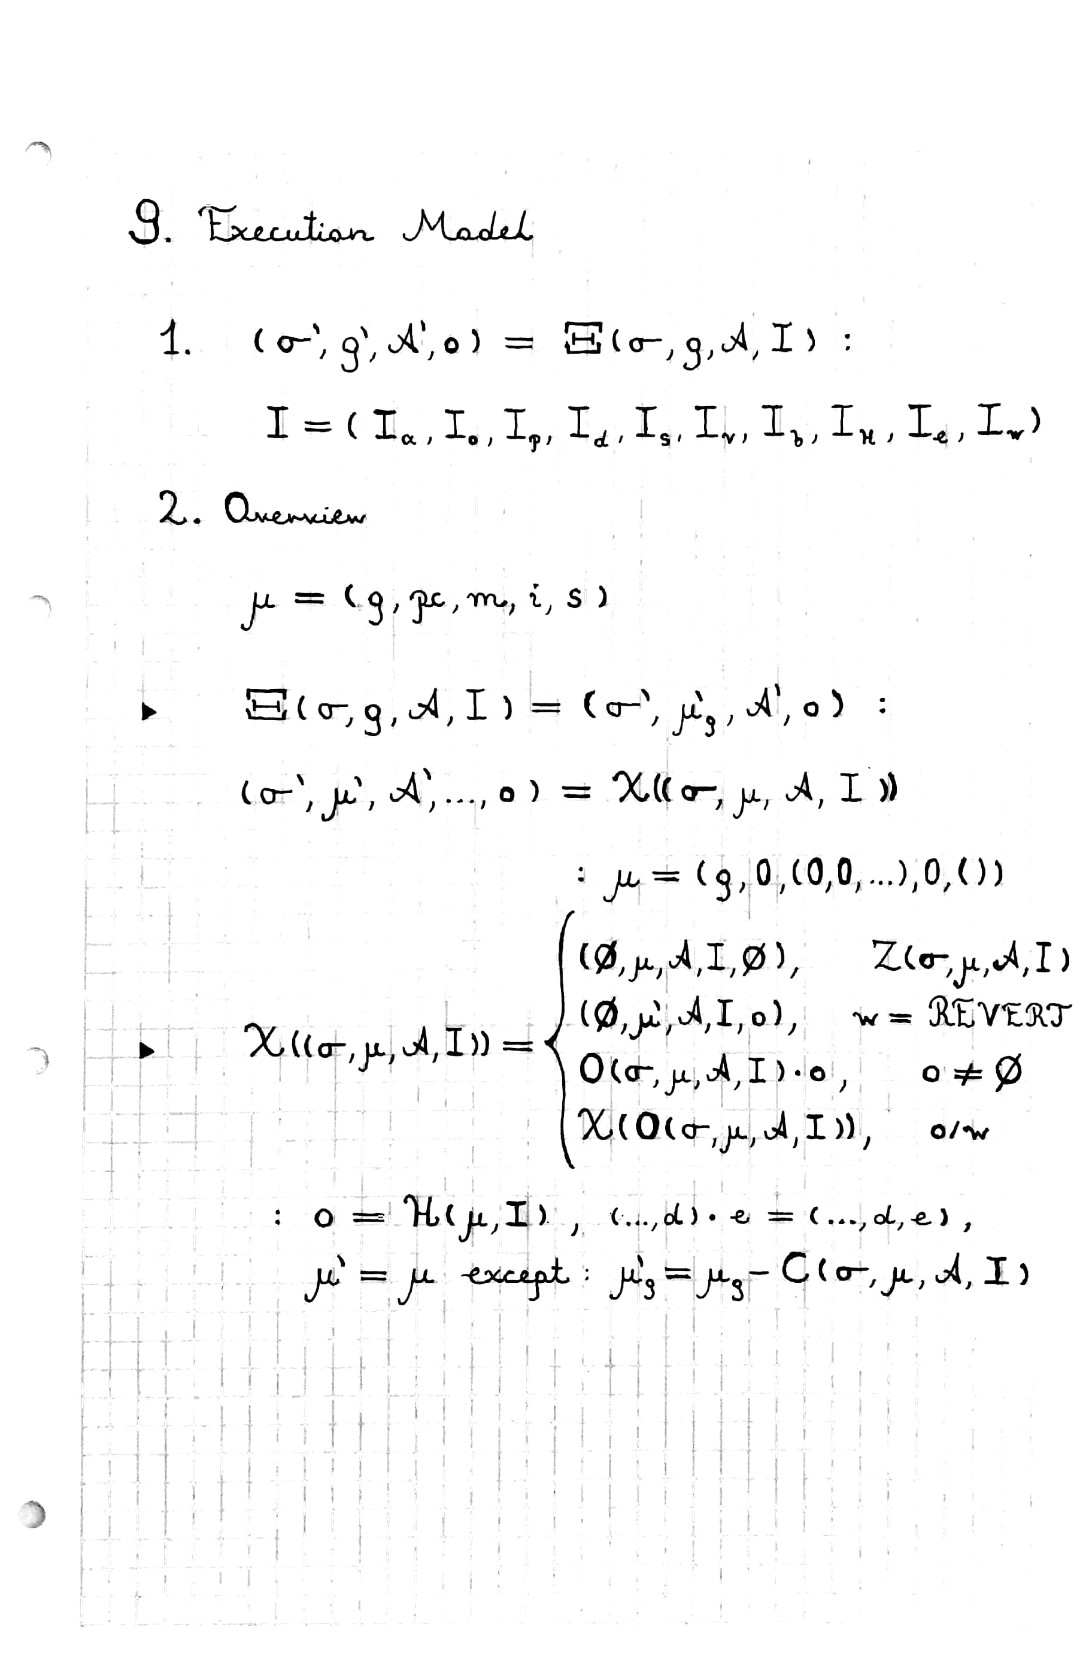 9. Execution Model
1. (σ`, g`, A`, o) = Ξ(σ, g, A, I) :
I = (I_a, I_o, I_p, I_d, I_s, I_v, I_b, I_H, I_e, I_w)
2. Overview
μ = (g, pc, m, i, s)
▶ Ξ(σ, g, A, I) = (σ`, μ`_g, A`, o) :
(σ`, μ`, A`, ..., o) = X((σ, μ, A, I))
: μ = (g, 0, (0,0,...), 0, ())
(Ø, μ, A, I, Ø), Z(σ, μ, A, I)
(Ø, μ`, A, I, o), w = REVERT
▶ X((σ, μ, A, I)) = {
O(σ, μ, A, I)·o, o ≠ Ø
X(O(σ, μ, A, I)), o/w
: o = H(μ, I), (..., d)·e = (..., d, e),
μ` = μ except : μ`_g = μ_g - C(σ, μ, A, I)